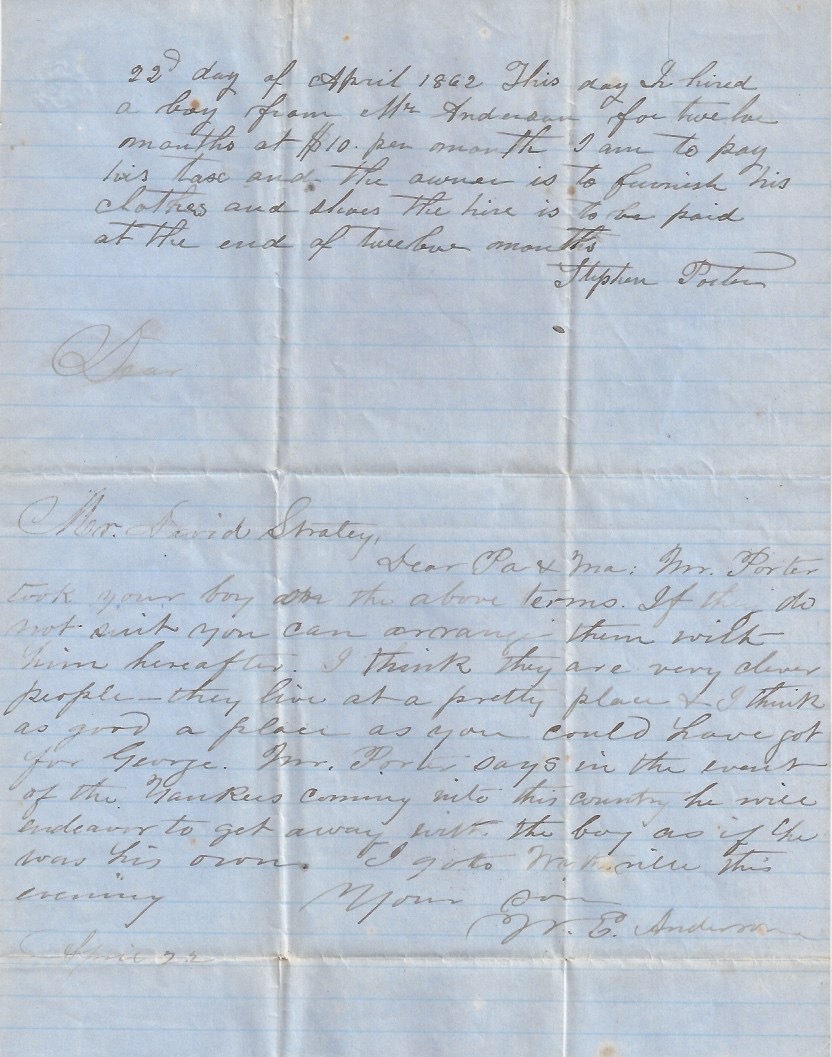 22d day of April 1862 This day I hired
a boy from Mr Anderson for twelve
months at $10. per month I am to pay
his tax and the owner is to furnish his
clothes and shoes the hire is to be paid
at the end of twelve months
Stephen Porter
Dear
Mr. David
Dear Pa & Ma: Mr. Porter
took your boy on the above terms. If they do
not suit you can arrange them with
him hereafter. I think they are very clever
people – they live at a pretty place & I think
as good a place as you could have got
for George. Mr. Porter says in the event
of the Yankees coming into this country he will
endeavor to get away with the boy as if he
was his own. I go to this
evening Your Son
W. E. Anderson
April 22